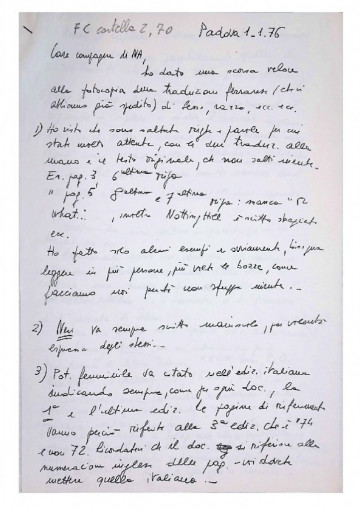 FC cartella 2, 70 Padova 1-1-76
Care compagne di NA,
ho dato una scorsa veloce
alla fotocopia della traduzione ferrarese (che vi
abbiamo già spedito) di Sesso, razza, ecc. ecc.
1) Ho visto che sono saltate righe e parole per cui
state molto attente, con le due traduz. alla
mano e il testo originale, che non salti niente.
Es. pag. 3 6ª ultima riga
" pag. 5 8ª ultima e 7ª ultima riga: manca "Or
what.., inoltre Notting Hill è scritto sbagliato
ecc.
Ho fatto solo alcuni esempi e ovviamente, bisogna
leggere in più persone, più volte le bozze, come
facciamo noi perché non sfugga niente. -
2) Neri va sempre scritto maiuscolo, per volontà
espressa degli stessi. -
3) Pot. femminile va citato nell'ediz. italiana
indicando sempre, come per ogni doc., la
1ª e l'ultima ediz. Le pagine di riferimento
vanno perciò riferite alla 3ª ediz. che è '74
e non 72. Ricordatevi che il doc. si riferisce alla
numerazione inglese delle pag. - voi dovete
mettere quella italiana. -